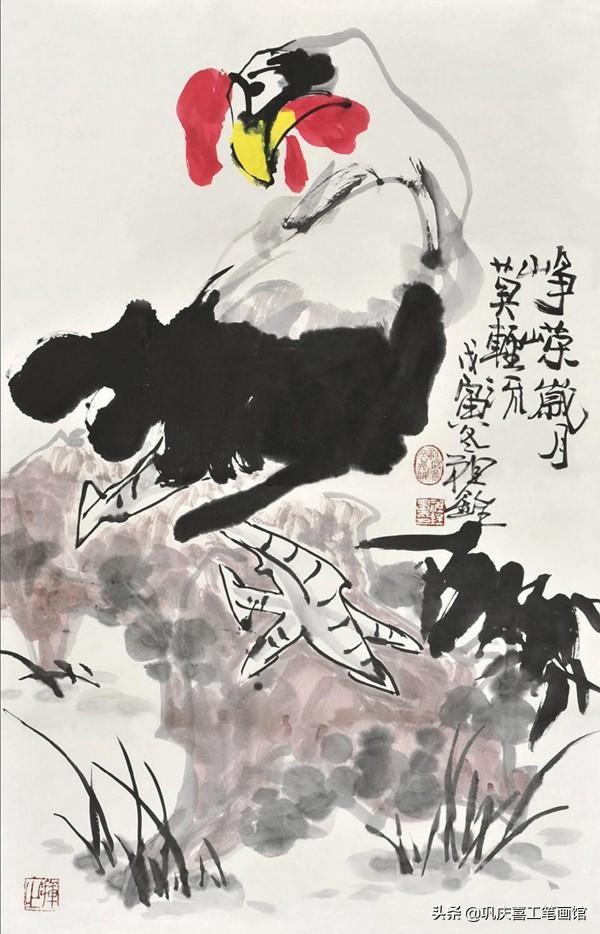 崢嶸歲月
莫輕流
戊寅冬
头条 @巩庆喜工笔画馆